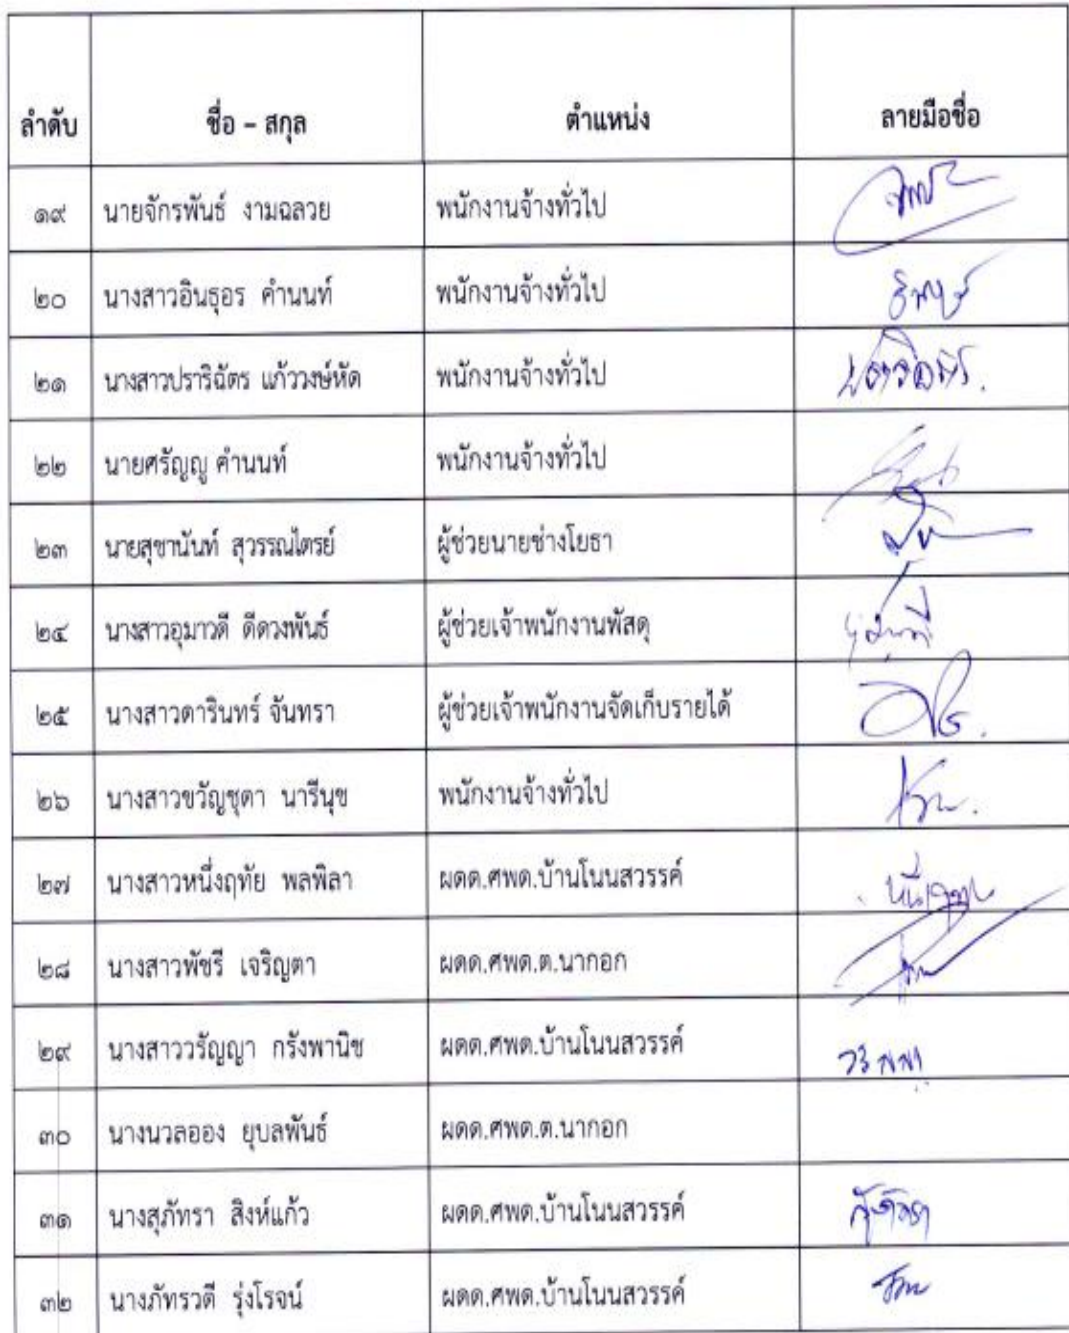 ลำดับ ชื่อ – สกุล ตำแหน่ง ลายมือชื่อ
๑๙ นายจักรพันธ์ งามฉลวย พนักงานจ้างทั่วไป
๒๐ นางสาวอินธุอร คำนนท์ พนักงานจ้างทั่วไป
๒๑ นางสาวปราริฉัตร แก้ววงษ์หัด พนักงานจ้างทั่วไป
๒๒ นายศรัญญู คำนนท์ พนักงานจ้างทั่วไป
๒๓ นายสุชานันท์ สุวรรณไตรย์ ผู้ช่วยนายช่างโยธา
๒๔ นางสาวอุมาวดี ดีดวงพันธ์ ผู้ช่วยเจ้าพนักงานพัสดุ
๒๕ นางสาวดารินทร์ จันทรา ผู้ช่วยเจ้าพนักงานจัดเก็บรายได้
๒๖ นางสาวขวัญชุตา นารีนุช พนักงานจ้างทั่วไป
๒๗ นางสาวหนึ่งฤทัย พลพิลา ผดด.ศพด.บ้านโนนสวรรค์
๒๘ นางสาวพัชรี เจริญตา ผดด.ศพด.ต.นากอก
๒๙ นางสาววรัญญา กรังพานิช ผดด.ศพด.บ้านโนนสวรรค์
๓๐ นางนวลออง ยุบลพันธ์ ผดด.ศพด.ต.นากอก
๓๑ นางสุภัทรา สิงห์แก้ว ผดด.ศพด.บ้านโนนสวรรค์
๓๒ นางภัทรวดี รุ่งโรจน์ ผดด.ศพด.บ้านโนนสวรรค์